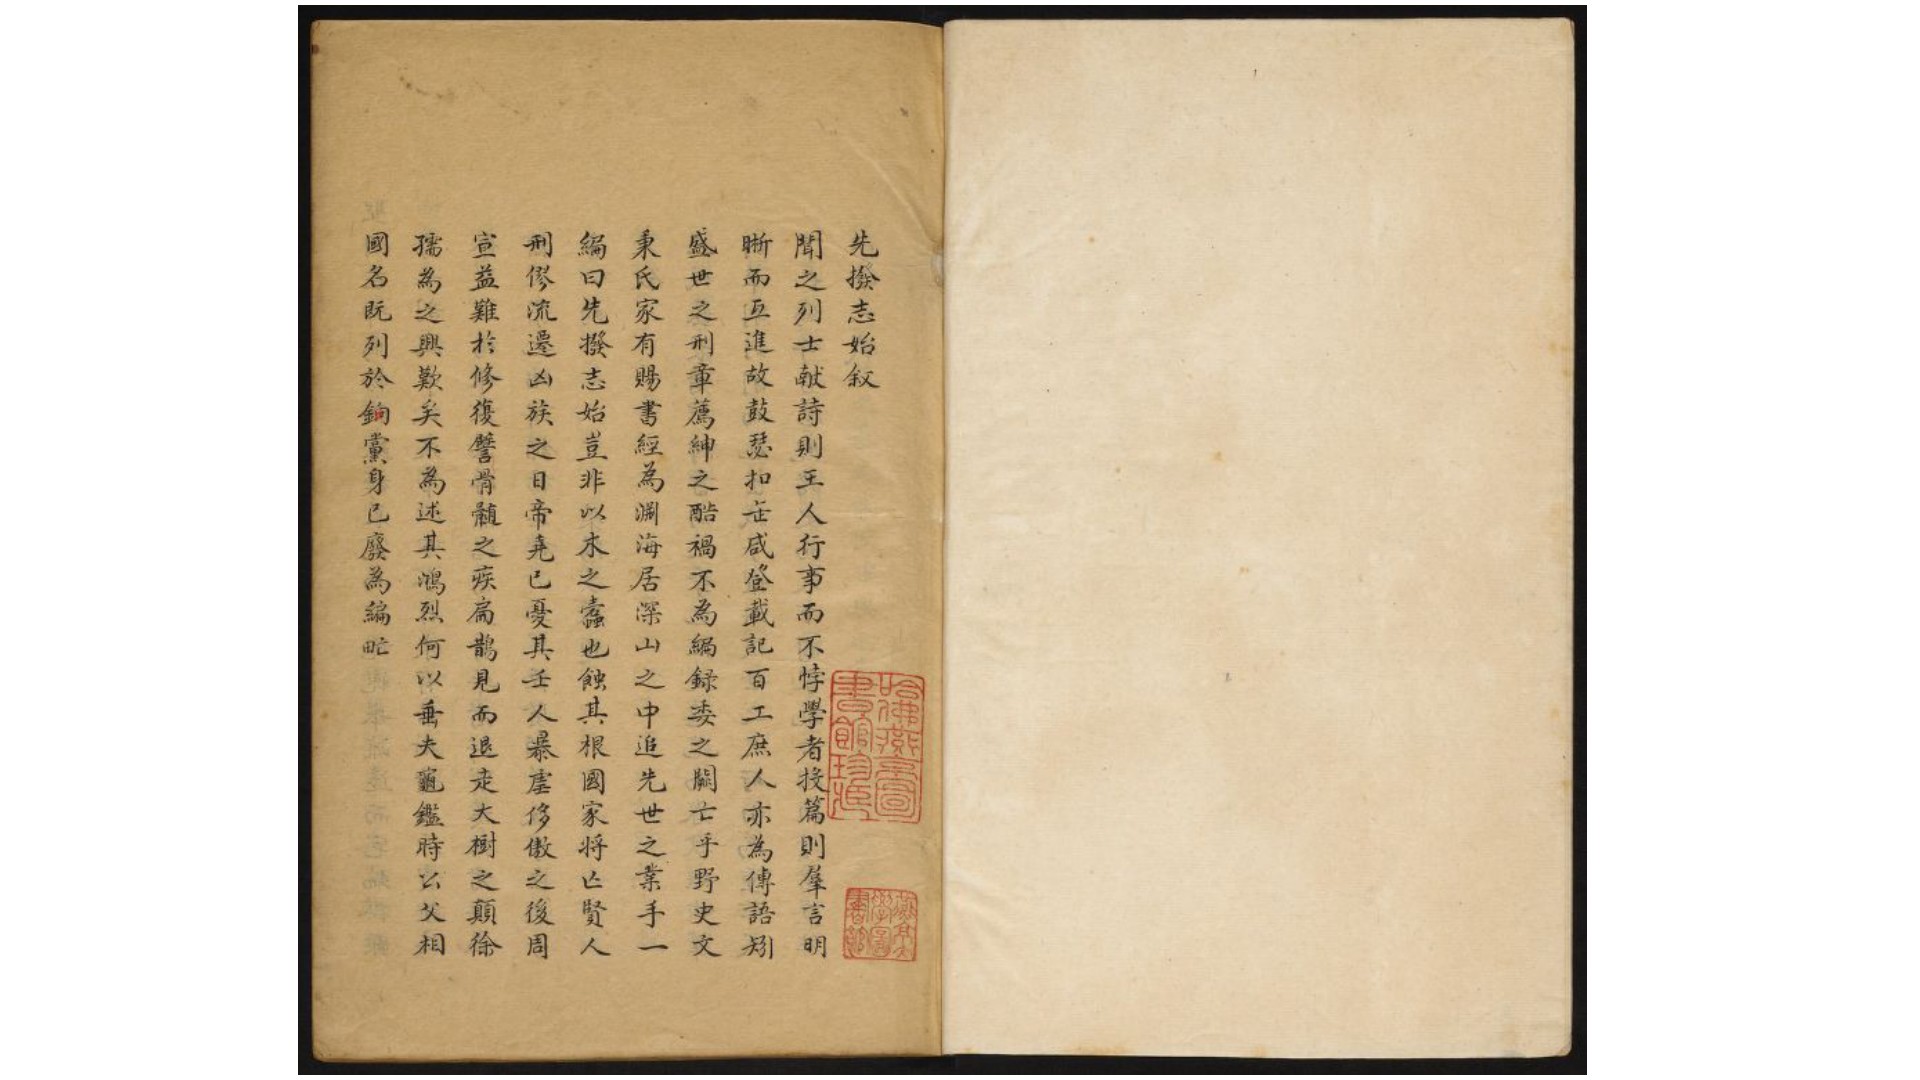 先撥志始叙
聞之列士献詩則王人行事而不悖學者授篇則羣言明
晰而互進故鼓瑟扣缶咸登載記百工庶人亦為傳語矧
盛世之刑章薦紳之酷禍不為編録委之闕亡乎野史文
秉氏家有賜書經為淵海居深山之中追先世之業手一
編曰先撥志始豈非以木之蠹也蝕其根國家將亡賢人
刑僇流遷凶族之日帝堯已憂其壬人暴虐侈傲之後周
宣益難於修復譬骨髓之疾扁鵲見而退走大樹之顛徐
孺為之興歎矣不為述其鴻烈何以垂夫龜鑑時公父相
國名既列於鉤黨身已廢為編甿
哈佛燕京圖
書館珍藏
燕京大
學圖
書館